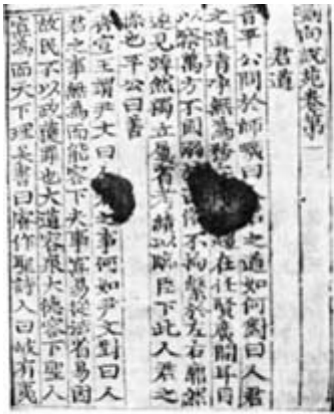 劉向說苑卷第一
君道
晉平公問於師曠曰人君之道如何對曰人君
之道清淨無為務在趨在任賢廣開耳目
以察萬方不固溺俗不拘繫於左右廓然
遠見踔然獨立屢省考績以臨臣下此人君之
操也平公曰善
齊宣王謂尹文曰人之事何如尹文對曰人
君之事無為而能容下夫事寡易從法省易因
故民不以政獲罪也大道容眾大德容下聖人
寡為而天下理矣書曰睿作聖詩人曰岐有夷